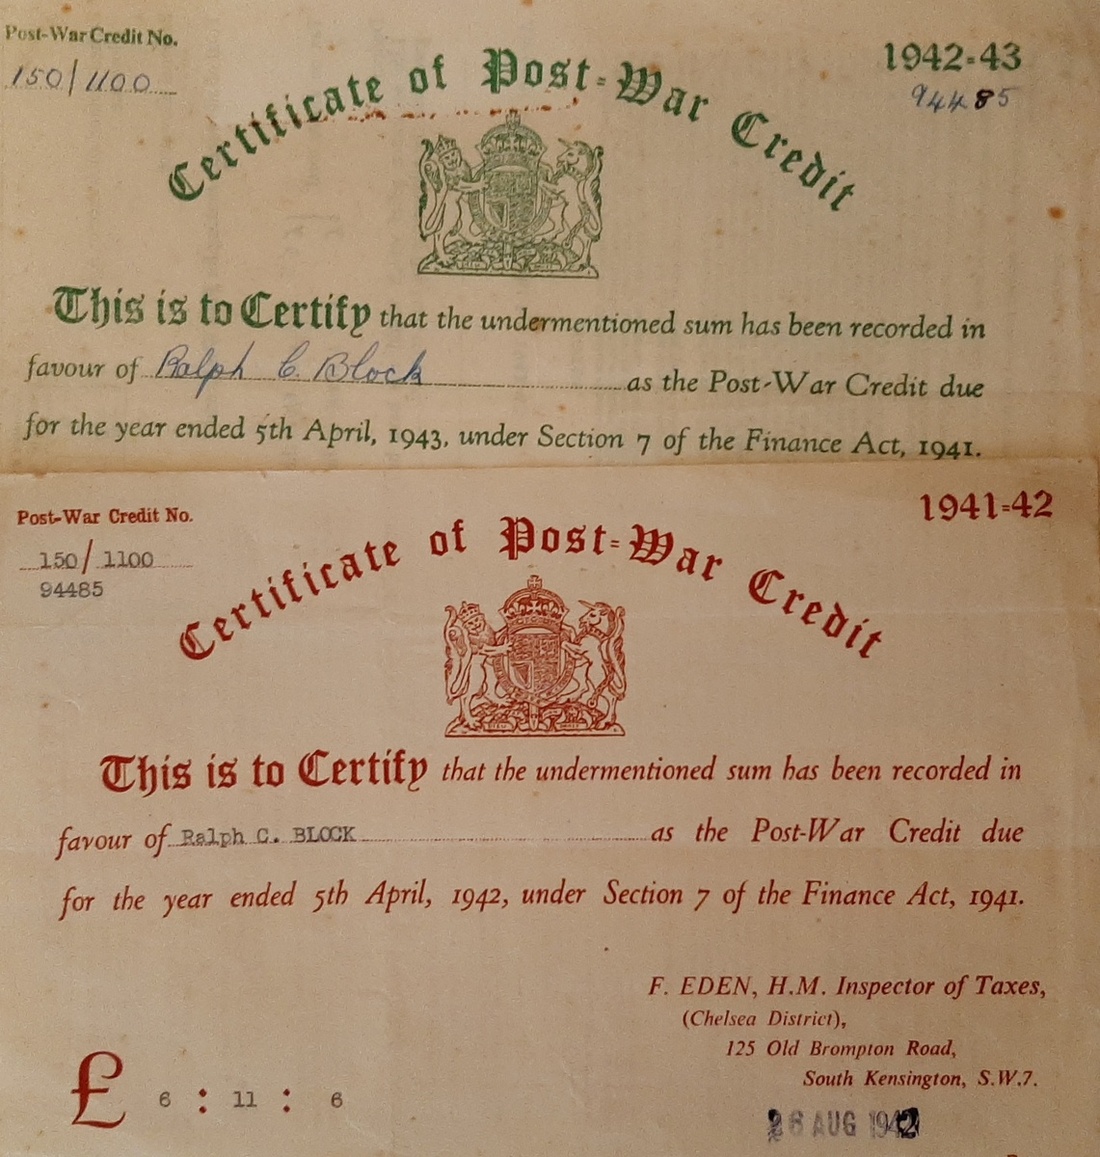 Post-War Credit No.
150/1100
1942-43
94485
Certificate of Post-War Credit
This is to Certify that the undermentioned sum has been recorded in
favour of Ralph C. Block as the Post-War Credit due
for the year ended 5th April, 1943, under Section 7 of the Finance Act, 1941.
Post-War Credit No.
150/1100
94485
1941-42
Certificate of Post-War Credit
This is to Certify that the undermentioned sum has been recorded in
favour of Ralph C. BLOCK as the Post-War Credit due
for the year ended 5th April, 1942, under Section 7 of the Finance Act, 1941.
F. EDEN, H.M. Inspector of Taxes,
(Chelsea District),
125 Old Brompton Road,
South Kensington, S.W.7.
£ 6 : 11 : 6
26 AUG 1942